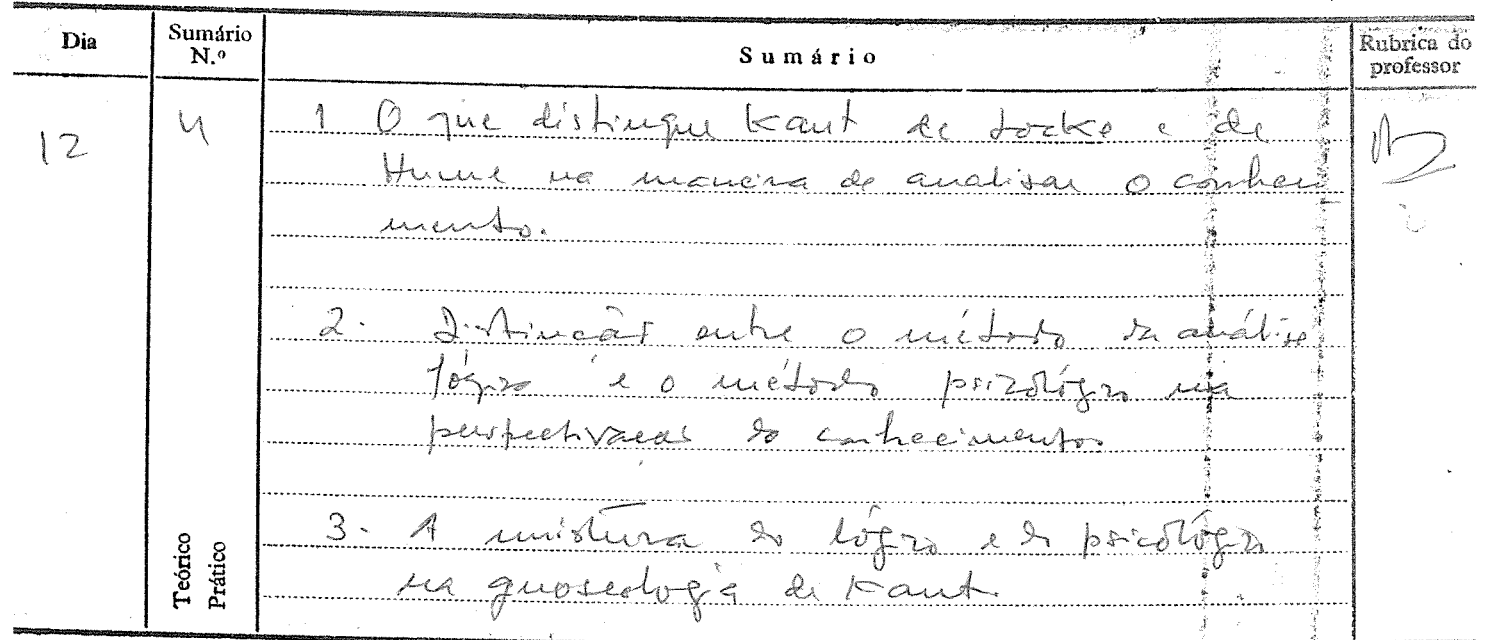 Dia
Sumário N.º
Sumário
Rubrica do professor
12
4
1 O que distingue Kant de Locke e de
Hume na maneira de analisar o conheci
mento.
2. Distinção entre o método da análise
lógica e o método psicológico na
perspectivação do conhecimento
3. A mistura do lógico e do psicológico
na gnoseologia de Kant.
Teórico
Prático